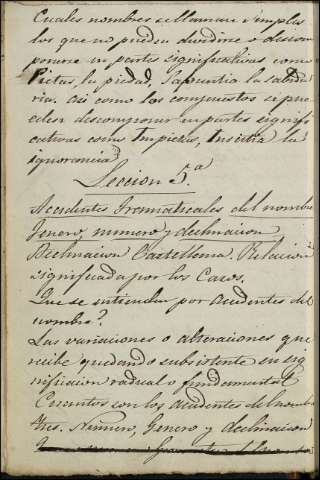 Cuales nombres se llaman simples
los que no pueden dividirse o descom
ponerse en partes significativas como
Pietas, la piedad, Sapientia la sabidu
ria. Asi como los compuestos se pue
den descomponer en partes signifi
cativas como Impietas, Inscitia la
ignorancia
Leccion 5ª
Accidentes Gramaticales del nombre
Jenero, numero y declinacion
Declinacion Castellana. Relacion
significada por los Casos.
Que se entiende por accidentes del
nombre?
Las variaciones o alteraciones que
recibe quedando subsistente en sig
nificacion radical o fundamental
Cuantos son los accidentes del nombre
Tres. Numero, Genero y declinacion